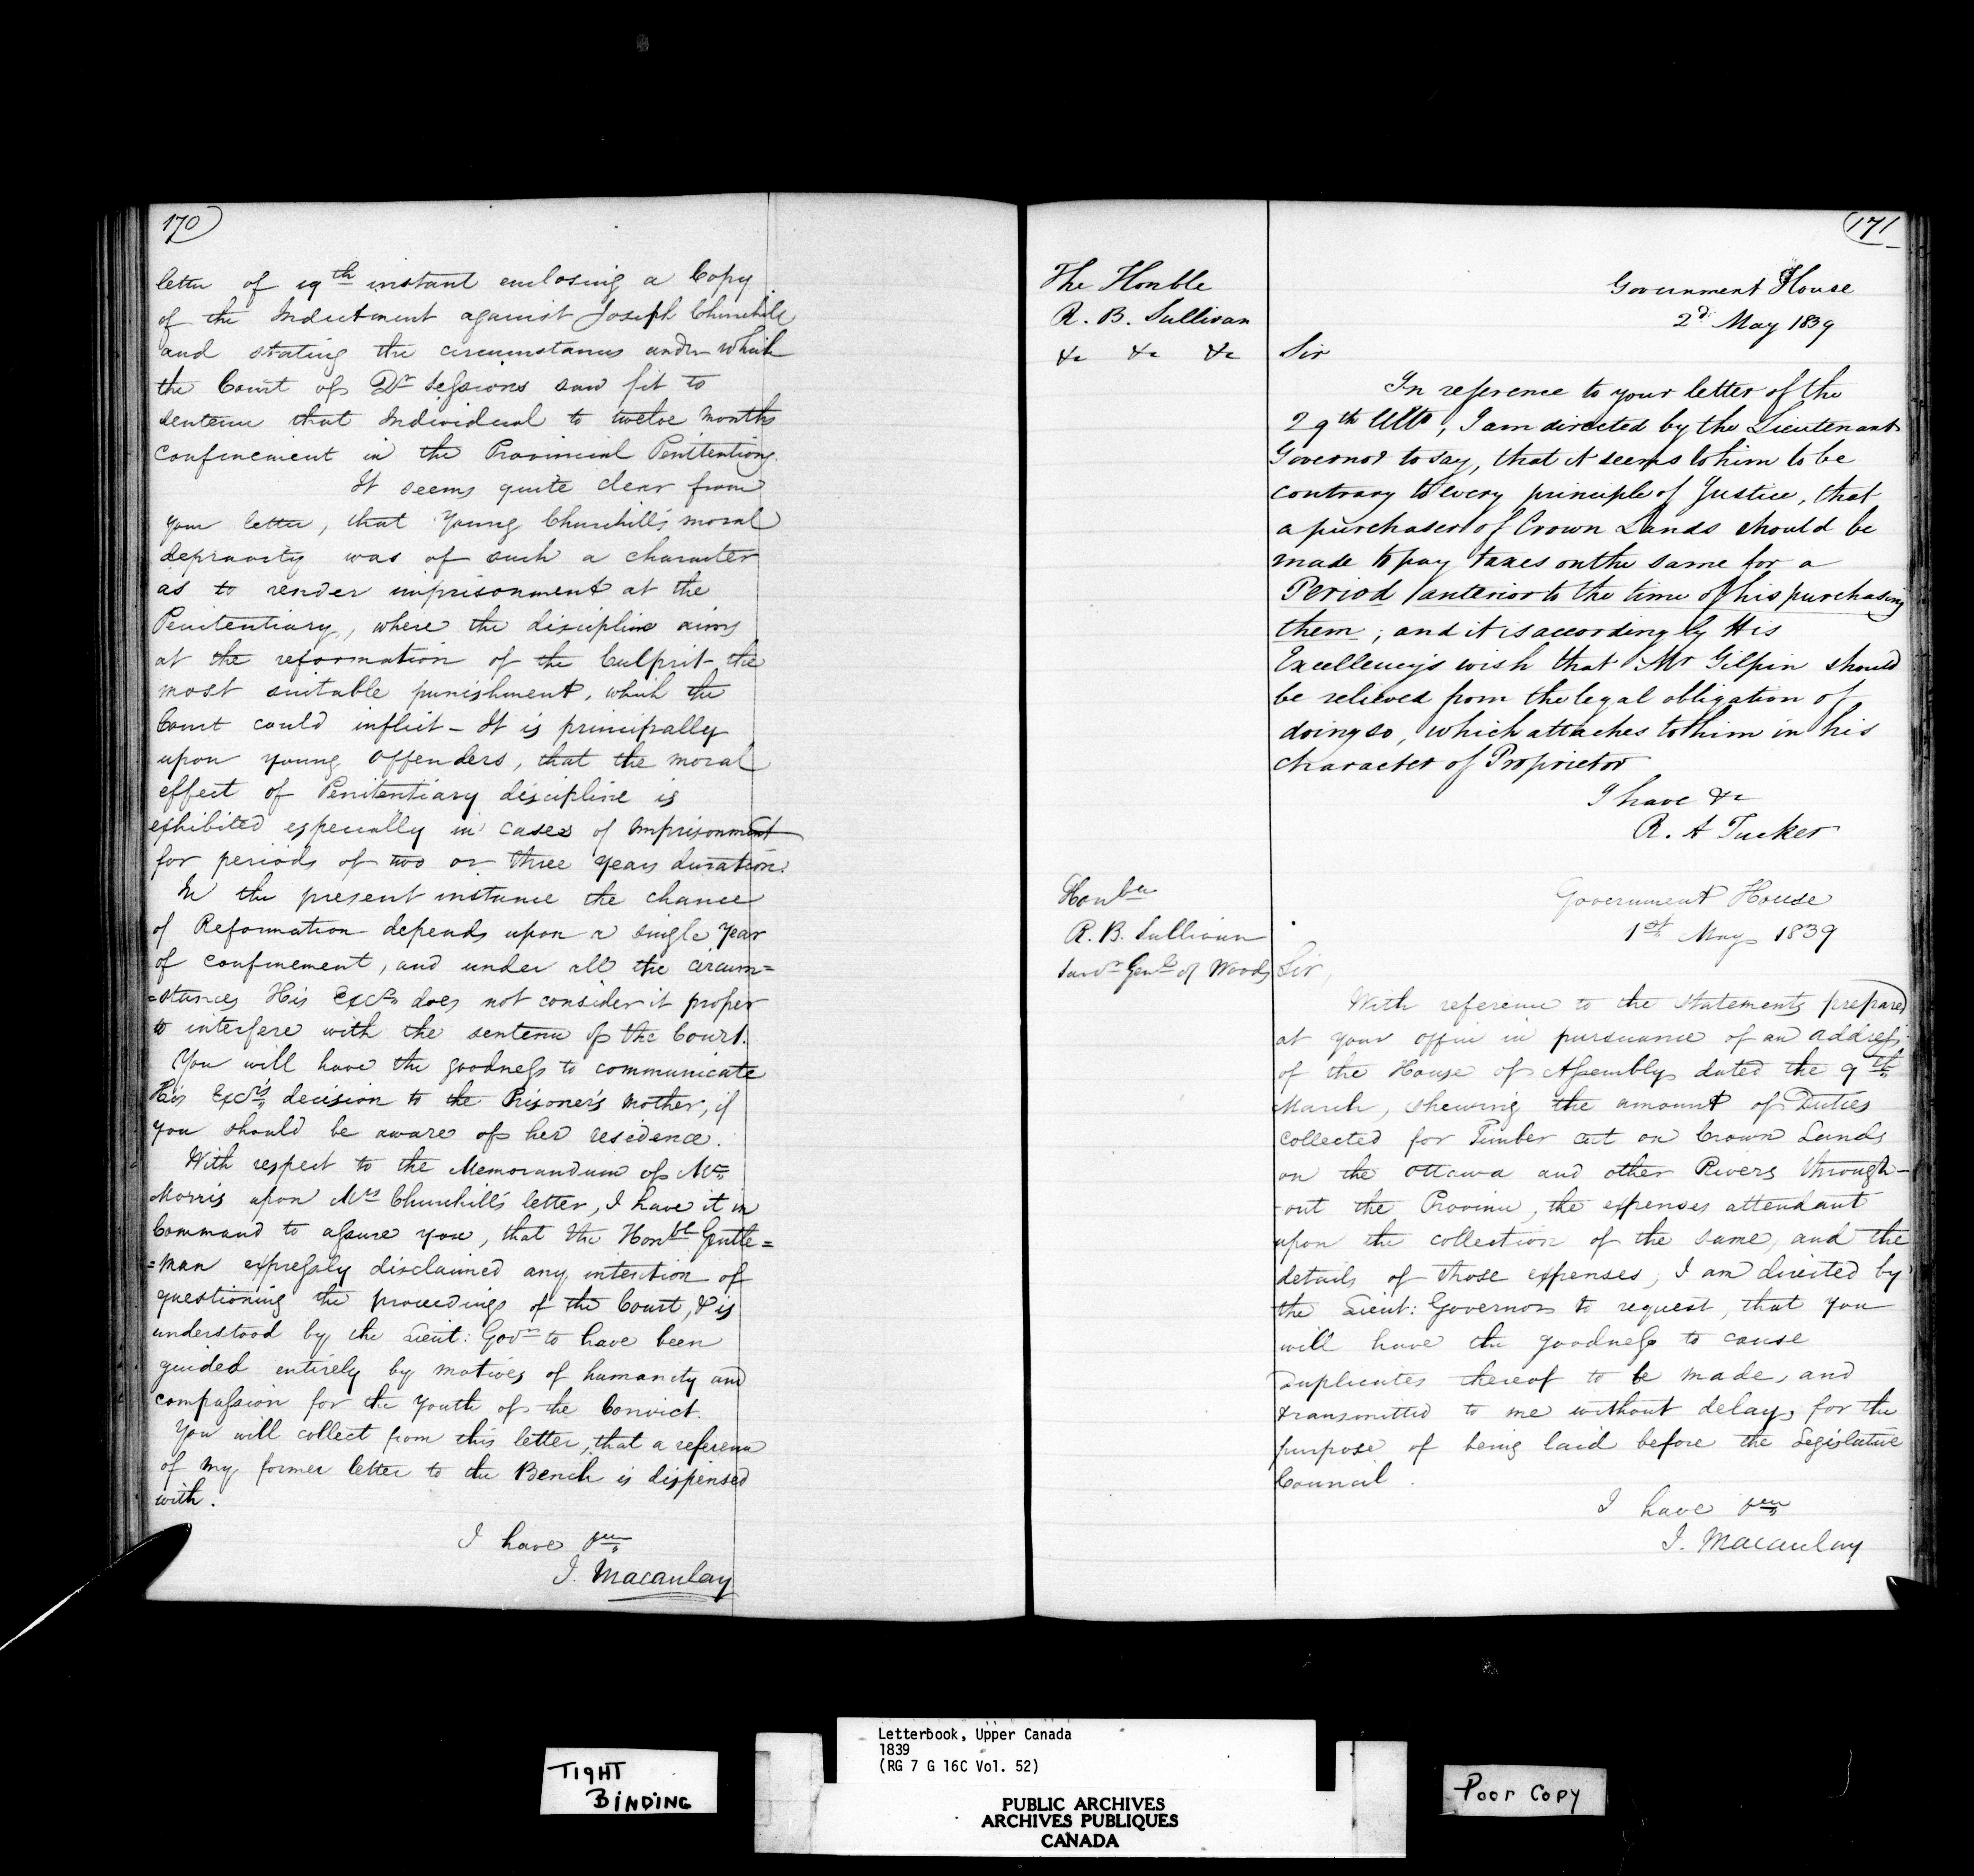 170
letter of 19th instant enclosing a Copy
of the Indictment against Joseph Churchill
and stating the circumstances under which
the Court of Qr Sessions saw fit to
sentence that Individual to twelve months
confinement in the Provincial Penitentiary.
It seems quite clear from
your letter, that Young Churchill's moral
depravity was of such a character
as to render imprisonment at the
Penitentiary, where the discipline aims
at the reformation of the Culprit - the
most suitable punishment, which the
Court could inflict - It is principally
upon young offenders, that the moral
effect of Penitentiary discipline is
exhibited especially in cases of imprisonment
for periods of two or three years duration.
In the present instance the chance
of Reformation depends upon a single year
of confinement, and under all the circum=
=stances His Excy does not consider it proper
to interfere with the sentence of the Court.
You will have the goodness to communicate
His Excy's decision to the Prisoner's mother, if
you should be aware of her residence.
With respect to the Memorandum of Mr
Morris upon Mrs Churchill's letter, I have it in
Command to assure you, that the Honble Gentle=
=man expressly disclaimed any intention of
questioning the proceedings of the Court, & is
understood by the Lieut: Govr to have been
guided entirely by motives of humanity and
compassion for the youth of the Convict.
You will collect from this letter, that a reference
of my former letter to the Bench is dispensed
with.
I have &ca
J. Macaulay
171
The Honble
R. B. Sullivan
&c &c &c
Government House
2d May 1839
Sir
In reference to your letter of the
29th Ulto, I am directed by the Lieutenant
Governor to say, that it seems to him to be
contrary to every principle of Justice, that
a purchaser of Crown Lands should be
made to pay taxes on the same for a
Period anterior to the time of his purchasing
them; and it is accordingly His
Excellency's wish that Mr Gilpin should
be relieved from the legal obligation of
doing so, which attaches to him in his
character of Proprietor
I have &c
R. A Tucker
Honble
R. B. Sullivan
Survr Genl of Woods
Government House
1st May 1839
Sir,
With reference to the statements prepared
at your office in pursuance of an address
of the House of Assembly dated the 9th
March, shewing the amount of Duties
collected for Timber cut on Crown Lands
on the Ottawa and other Rivers through-
-out the Province, the expenses attendant
upon the collection of the same, and the
details of those expenses, I am directed by
the Lieut: Governor to request, that you
will have the goodness to cause
Duplicates thereof to be made, and
transmitted to me without delay, for the
purpose of being laid before the Legislative
Council.
I have &ca
J. Macaulay
TIGHT
BINDING
Letterbook, Upper Canada
1839
(RG 7 G 16C Vol. 52)
PUBLIC ARCHIVES
ARCHIVES PUBLIQUES
CANADA
Poor Copy